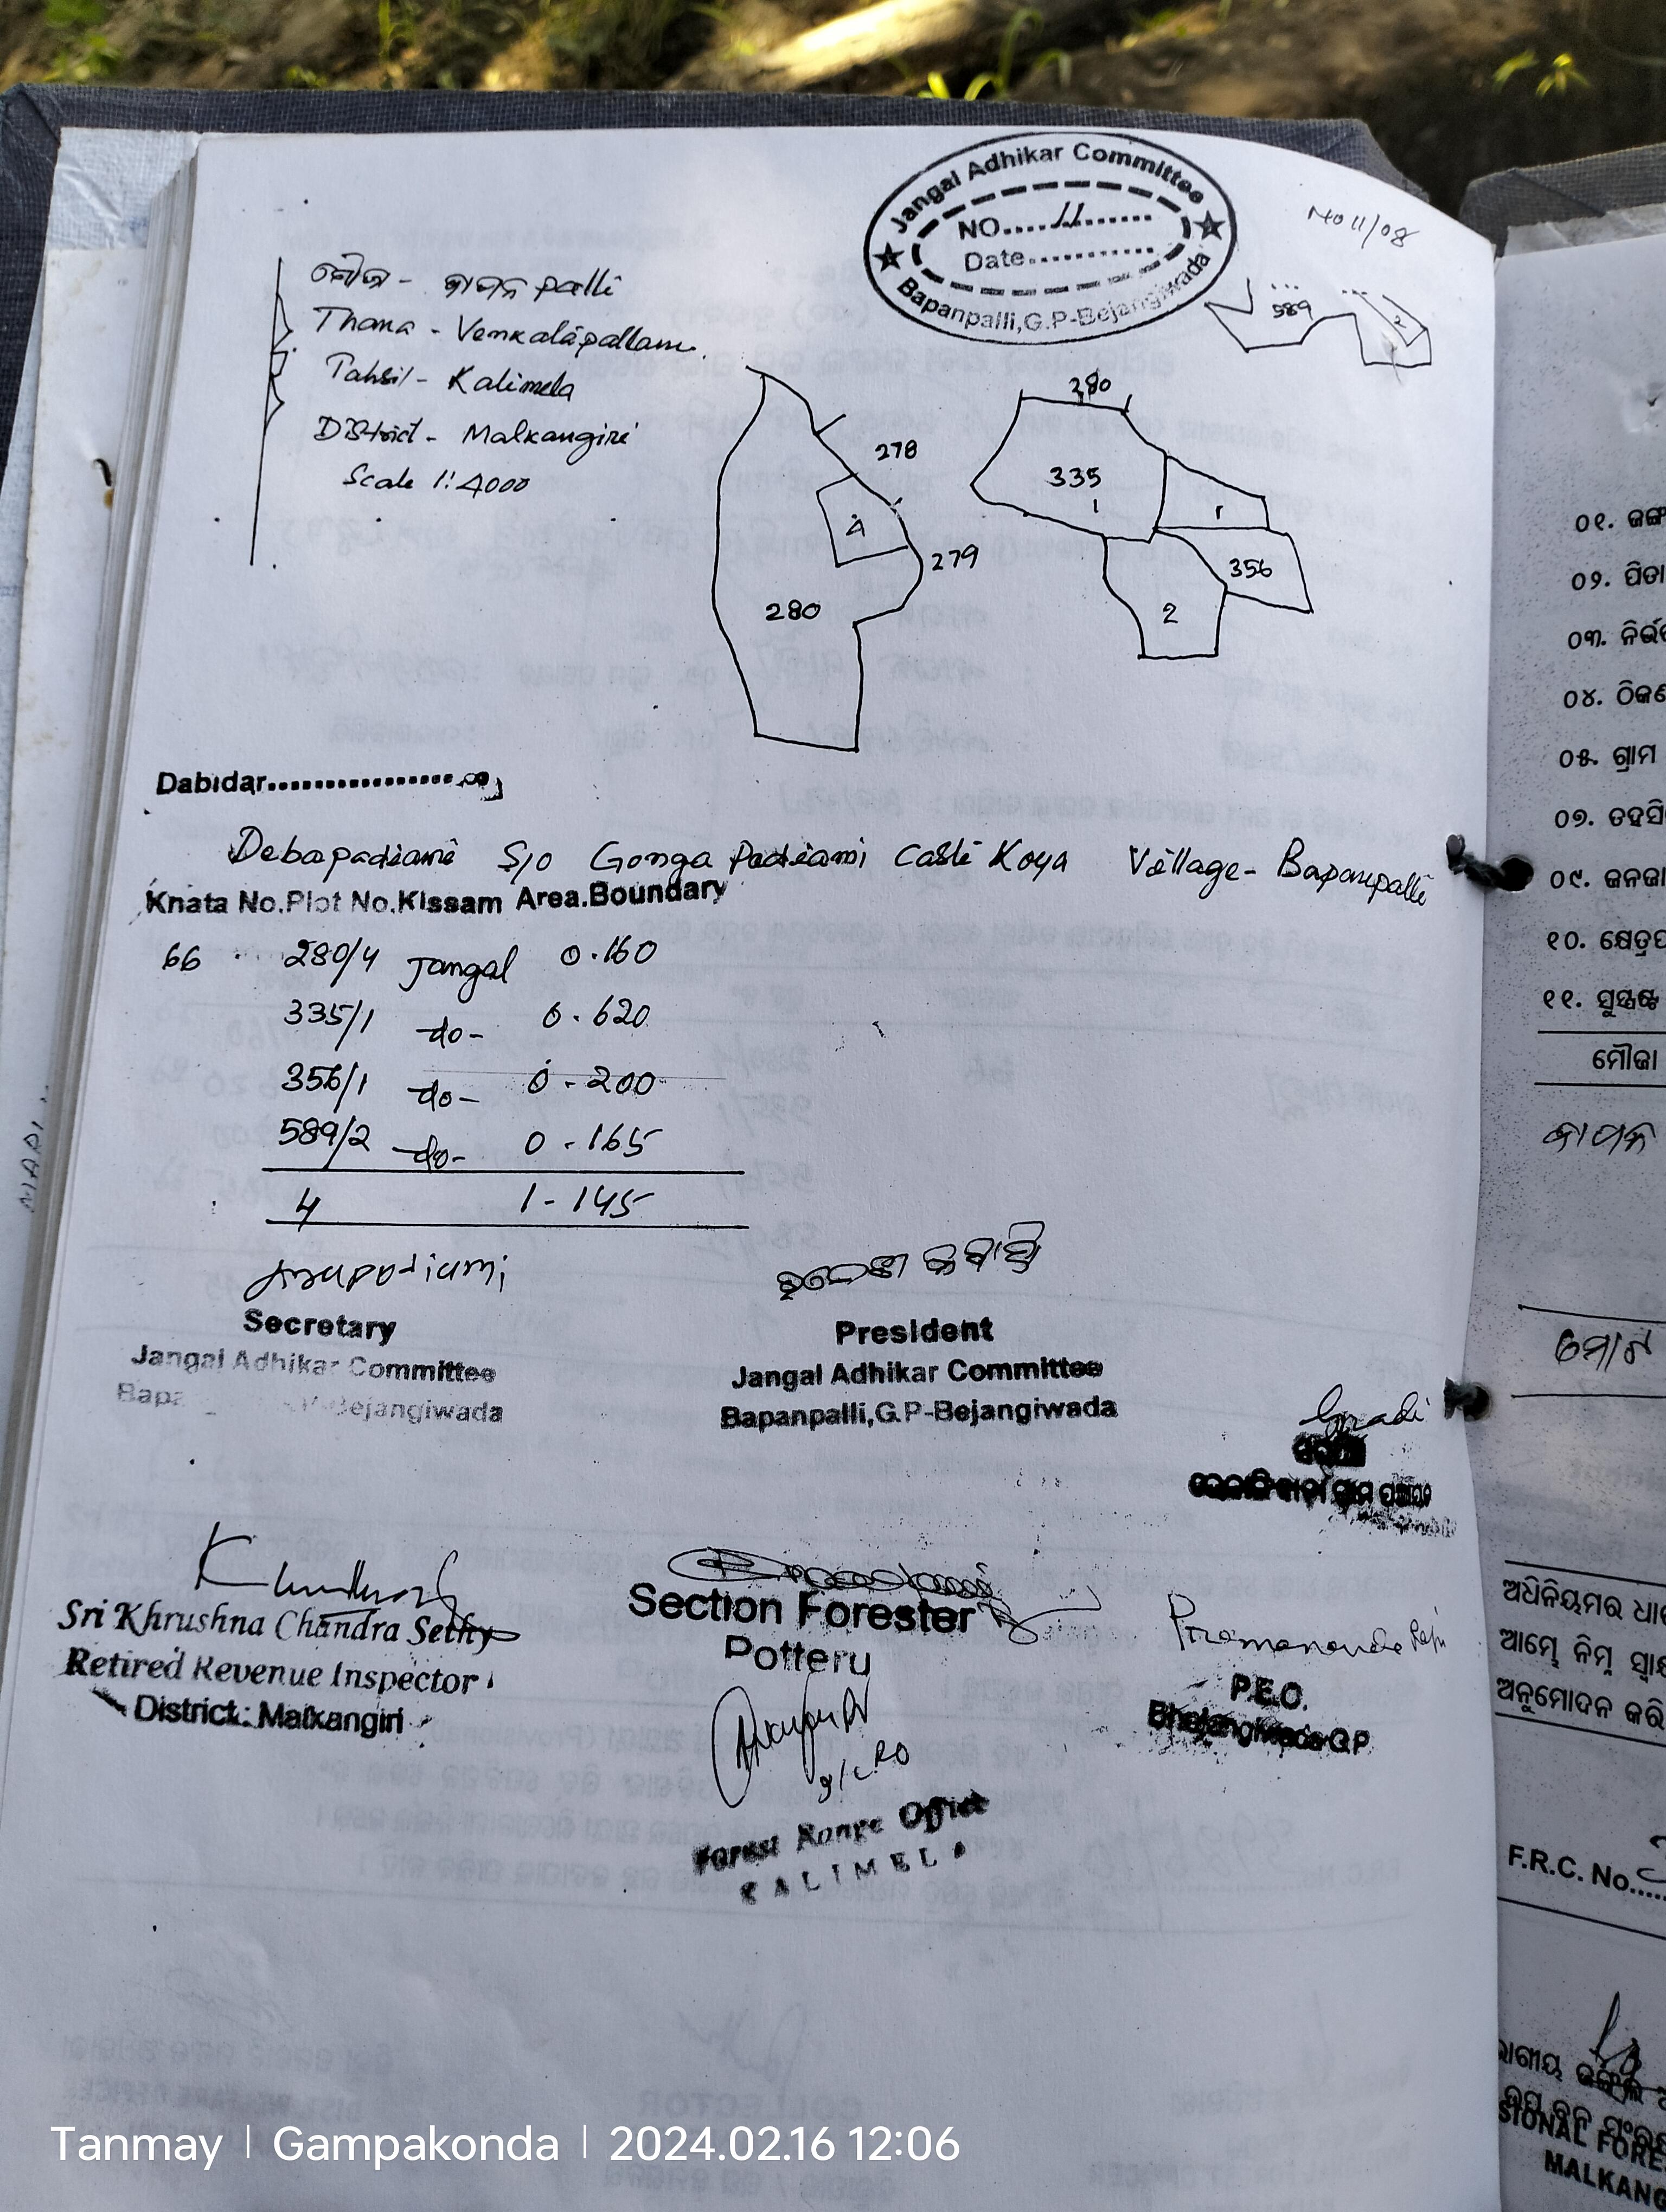 Jangal Adhikar Committee
NO....11.......
Date.............
Bapanpalli,G.P-Bejangiwada
No 11/08
ମୌଜା - ବାପନ palli
Thana - Venkalapallam
Tahsil - Kalimela
District - Malkangiri
Scale 1:4000
589
2
280
278
335
1
1
4
279
356
280
2
Dabidar..................
Debapadiami S/o Gonga Padiami Caste Koya Village - Bapanpalli
Khata No.Plot No.Kissam Area.Boundary
66 280/4 Jangal 0.160
335/1 -do- 0.620
356/1 -do- 0-200
589/2 -do- 0-165
4 1-145
Secretary
President
Jangal Adhikar Committee
Jangal Adhikar Committee
Bapa G.P-Bejangiwada
Bapanpalli,G.P-Bejangiwada
Sri Khrushna Chandra Sethy
Retired Revenue Inspector
District: Malkangiri
Section Forester
Pottery
P.E.O.
Bhejangiwada G.P
Forest Range Office
KALIMELA
୦୧. ଜଙ୍ଗ
୦୨. ପିତା
୦୩. ନିର୍ଭ
୦୪. ଠିକଣ
୦୫. ଗ୍ରାମ
୦୭. ତହସି
୦୯. ଜନଜା
୧୦. କ୍ଷେତ୍ରଫ
୧୧. ସୁସ୍ପଷ୍ଟ
ମୌଜା
ବାପନ
ମୋଟ
ଅଧିନିୟମର ଧା
ଆମ୍ଭେ ନିମ୍ନ ସ୍ୱା
ଅନୁମୋଦନ କରି
F.R.C. No.....
SIONAL FORE
MALKANG
Tanmay | Gampakonda | 2024.02.16 12:06